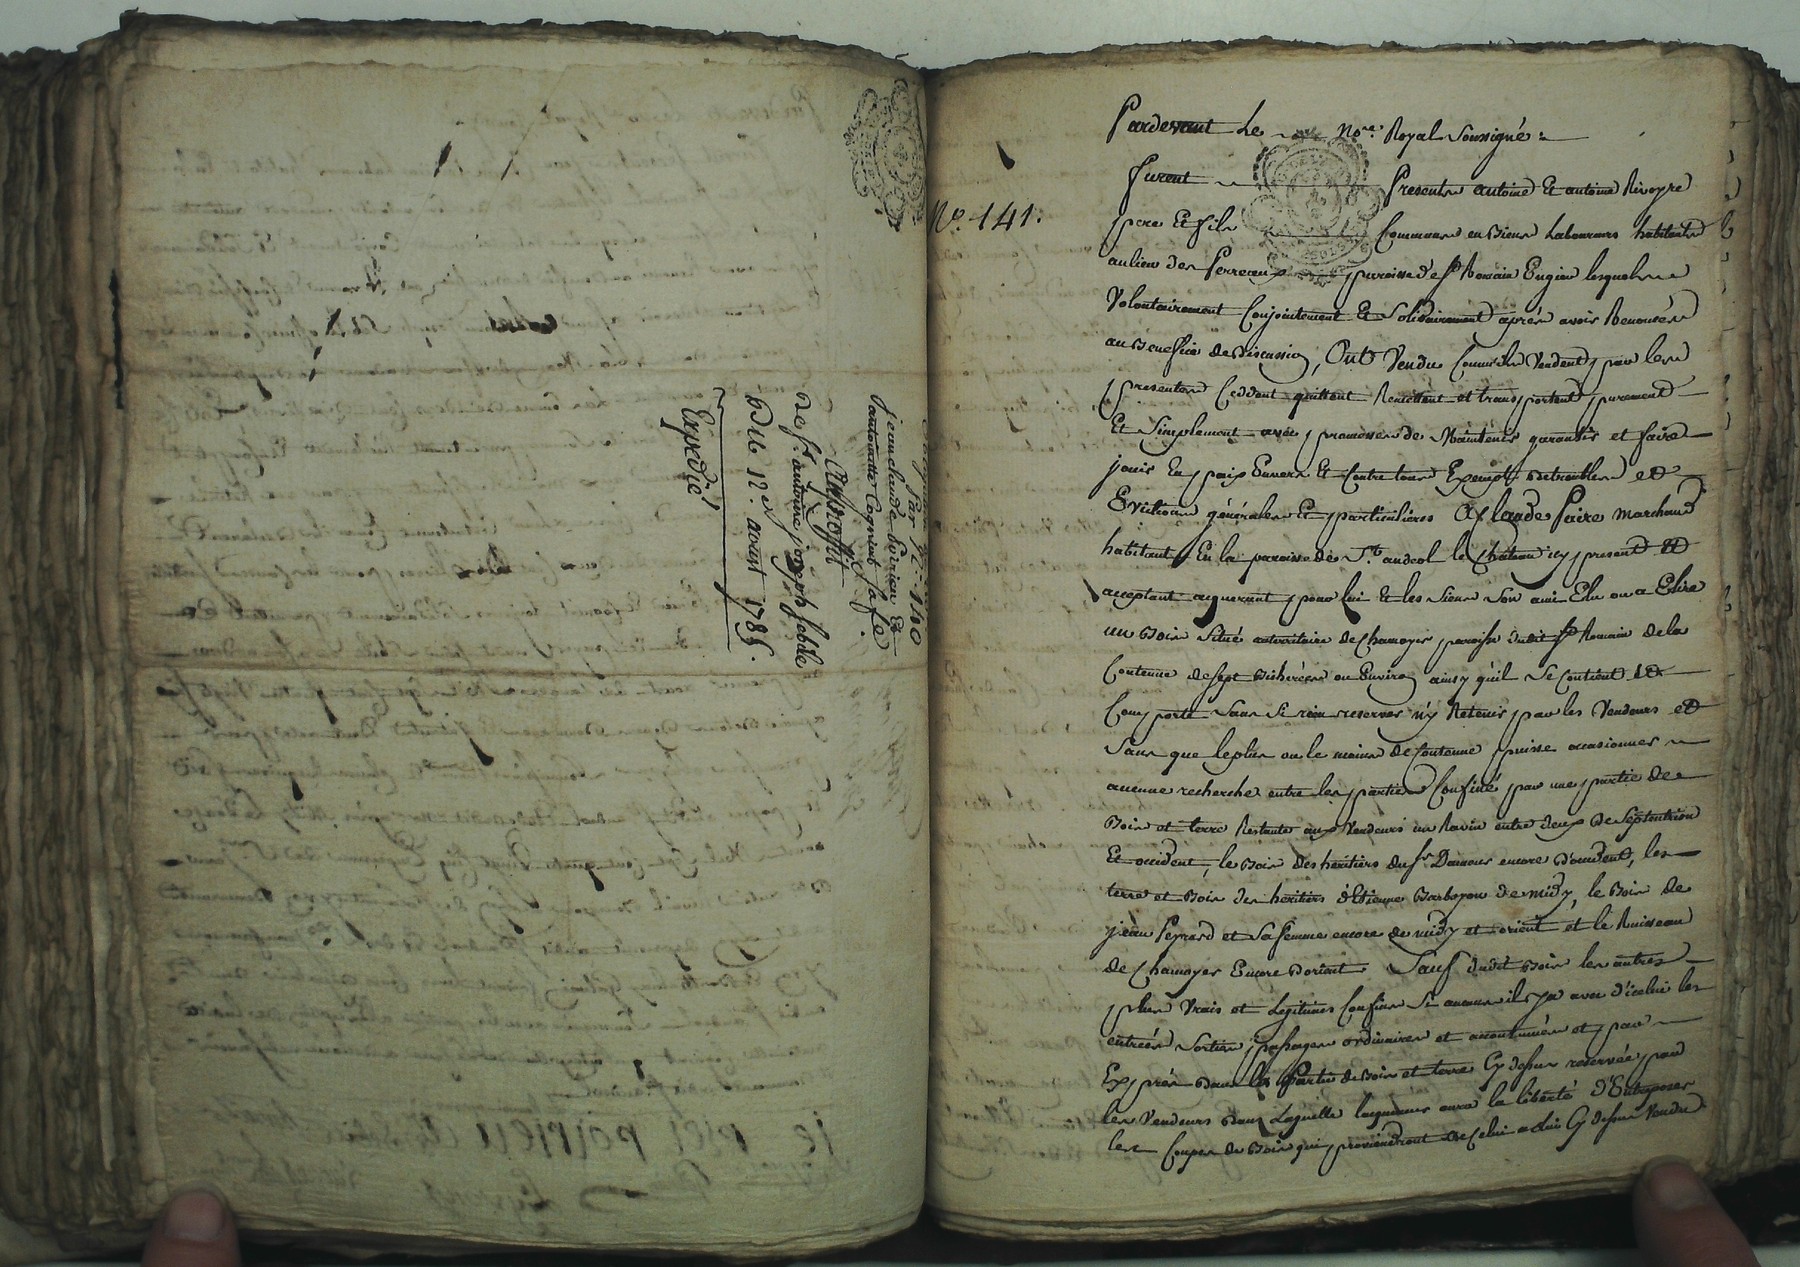 par
jean claude poirieu Et
antoinette Cognieu Sa fe
au proffit
de sr. antoine joseph
Du 12e. aoust 1785.
Expedié
No. 141.
Pardevant Le No.re Royal Soussigné
furent Presents antoine Et antoine Rivoyre
pere Et fils Communs en Biens Laboureurs habitants
au lieu des Perreaux paroisse de st Romain Engier lesquels
Volontairement Conjointement Et Solidairement après avoir Renoncés
au Benefice de Discussion, Ont Vendu Comm'ils Vendent par les
presentes Ceddent quittent Remettent et transportent purement
Et Simplement avec promesse de Maintenir garantir et faire
jouir En paix Envers Et Contre tous Exempt de troubles et
Evictions générales Et particulieres A Claude Faire Marchand
habitant En la paroisse de St. andeol le Château icy present Et
acceptant acquereur pour lui Et les Siens Son ami Elu ou a Elire
un Bois Situé au territoire de Chamoyer paroisse dudit st Romain de la
Contenue de Sept Bicherées ou Environ ainsy qu'il Se Contient Et
Comporte Sans Si rien reserver n'y Retenir par les Vendeurs et
Sans que le plus ou le moins de Contenue puisse occasionner
aucune recherche entre les parties Confiné par une partie de
Bois et terre Restante aux Vendeurs un Ravin entre deux de Septentrion
Et occident, le Bois des heritiers du sr Damour encore d'occident, les
terre et Bois des heritiers d'Etienne Barboyon de midy, le Bois de
jean Peyrard et Sa femme encore de midy et orient et le Ruisseau
de Chamoyer Encore d'orient Sauf dudit Bois les autres
plus Vrais et Legitimes Confins Si aucuns il y a avec d'icelui les
entrées Sorties passages ordinaires et accoutumées et par
Exprés dans la Partie de Bois et terre Cy dessus reservée par
les Vendeurs dans Laquelle lacquereur aura la liberté d'Entreposer
les Coupes de Bois qui proviendront de Celui a lui Cy dessus Vendu